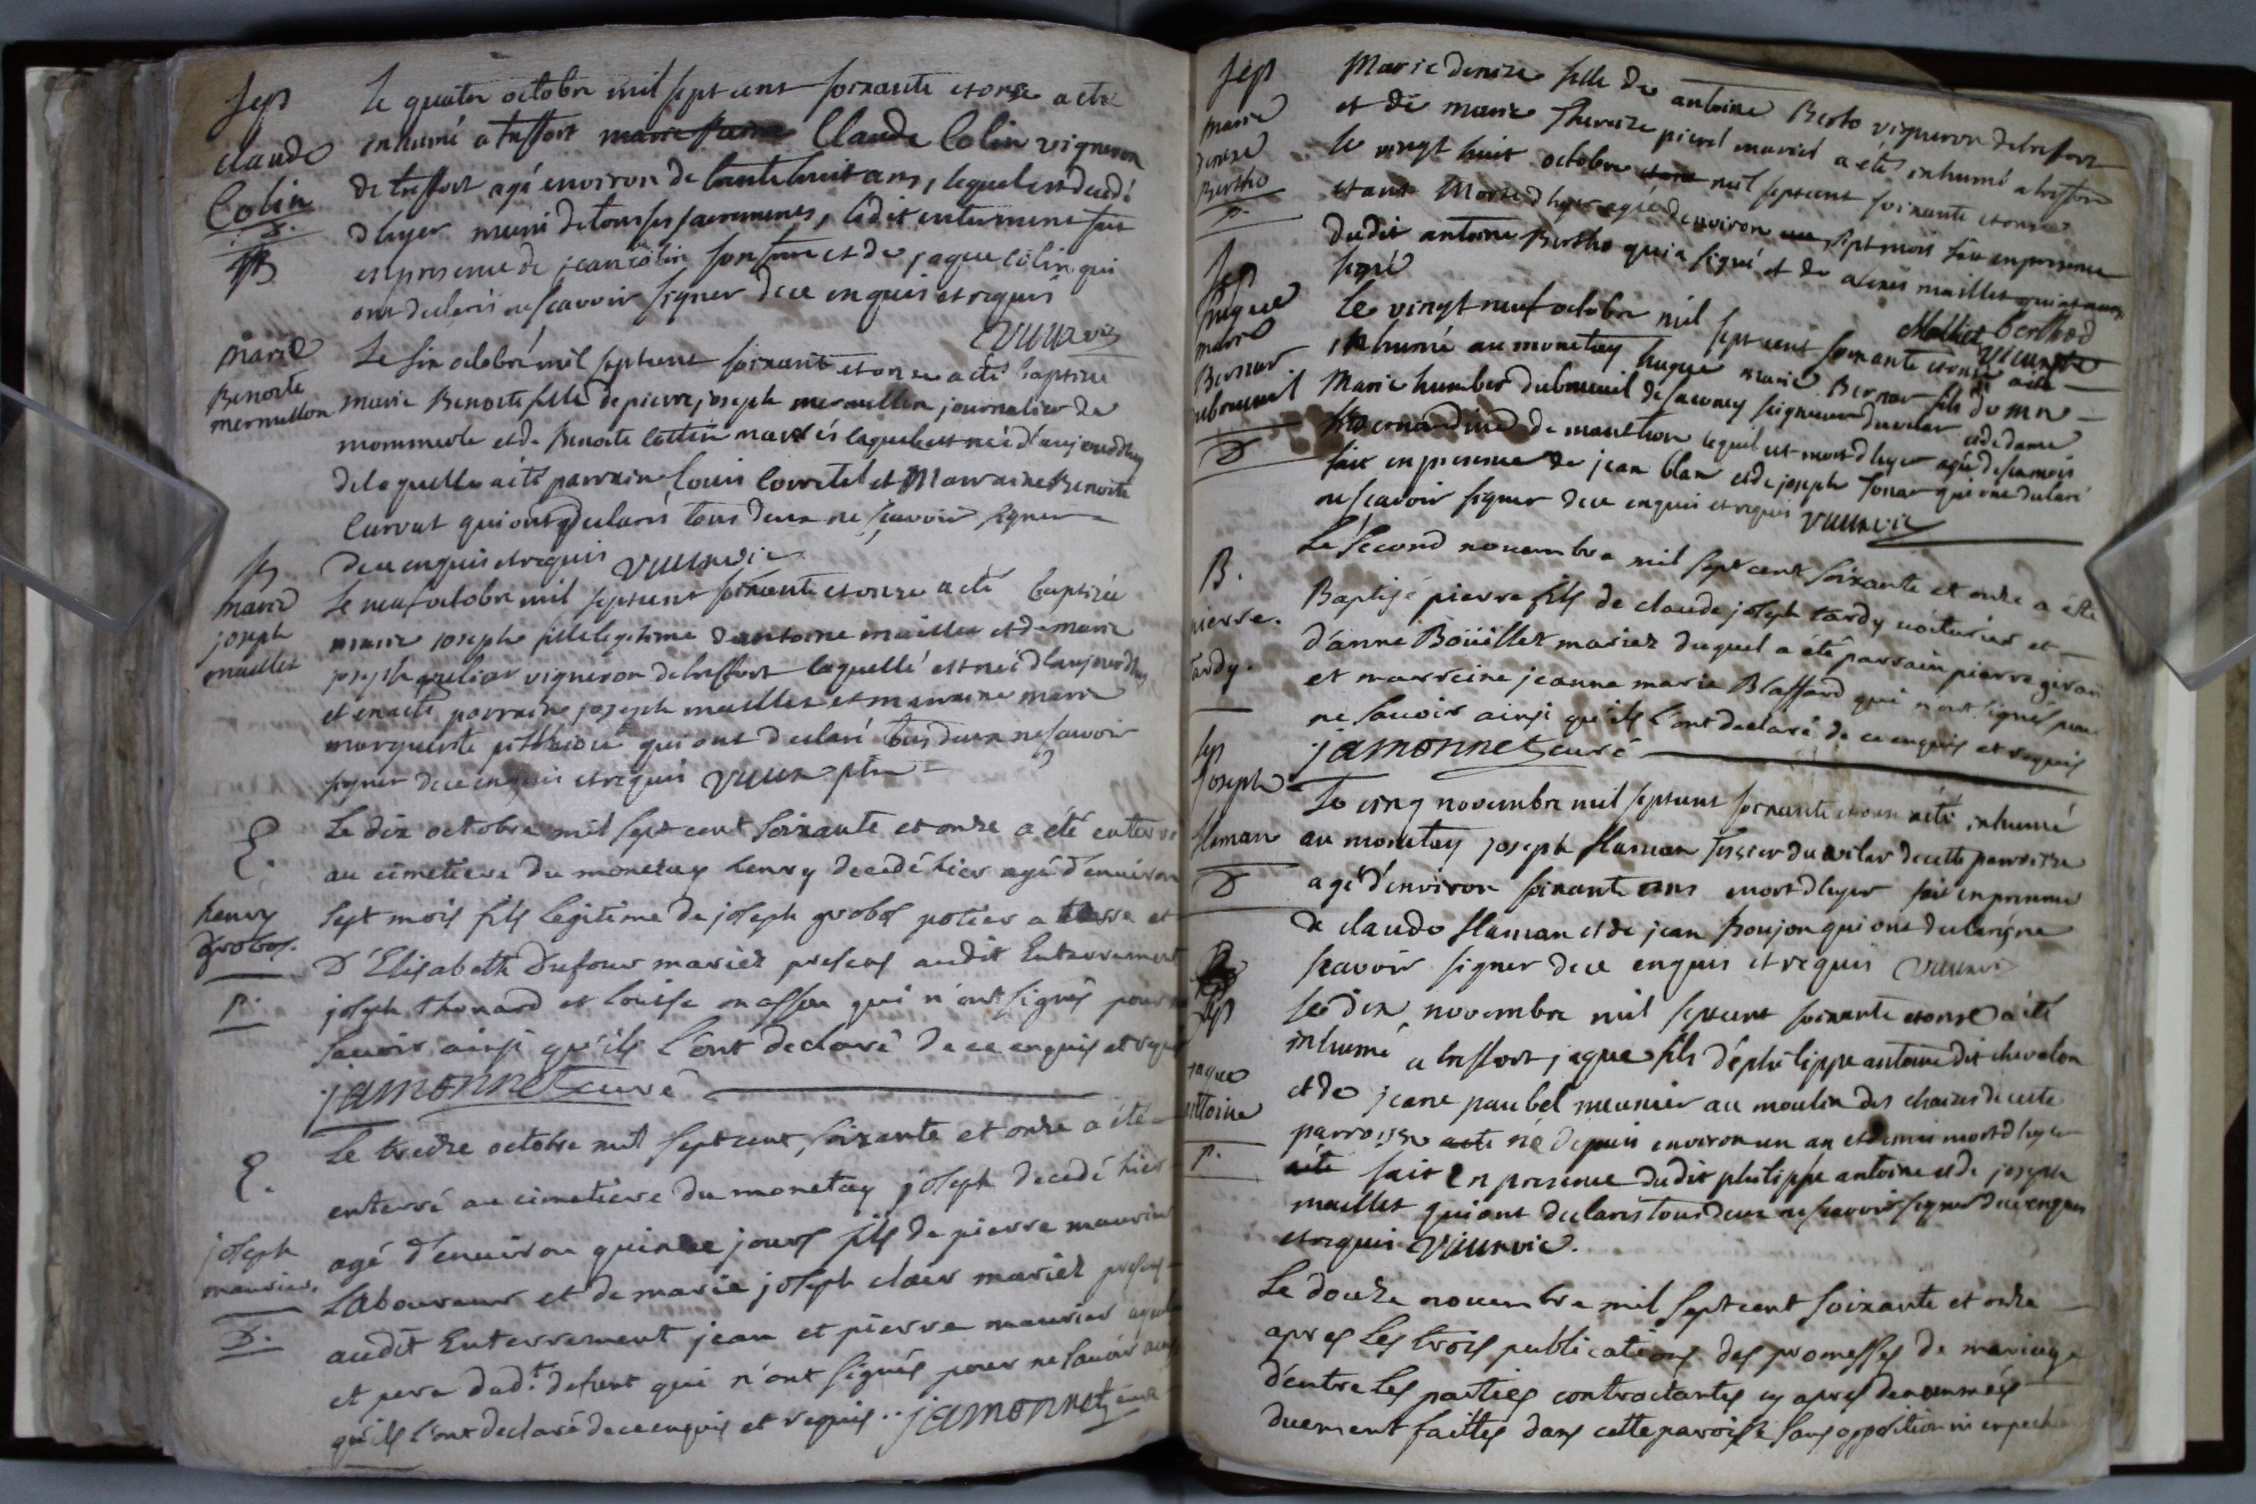 Sep
claude
Colin
Le quater octobre mil sept cent soixante et onze a eté
inhumé a treffort Claude Colin vigneron
de treffort agé environ de trente huit ans, lequel est decedé
d'hyer muni de tous ses sacremens, ledit enterrement fait
en presence de jean colin son frere et de jaque colin qui
ont declarés ne scavoir signer de ce enquis et requis
marie
Benoite
mermillon
Le six octobre mil sept cent soixante et onze a eté baptizée
marie Benoite fille de pierre joseph mermillon journalier de
et de Benoite cottin mariés laquelle est née d'aujourdhuy
de laquelle a été parrain Louis et Marraine Benoite
Curvat qui ont declarés tous deux ne scavoir signer
de ce enquis et requis
marie
joseph
maillet
Le neuf octobre mil sept cent soixante et onze a eté baptizée
marie joseph fille legitime d'antoine maillet et de marie
joseph vigneron de treffort laquelle est née d'aujourdhuy
et en a eté parrain joseph maillet et marraine marie
marguerite qui ont declaré tous deux ne scavoir
signer de ce enquis et requis
E.
henry
grobos.
P.
Le dix octobre mil sept cent soixante et onze a été enterré
au cimetiere du monetay henry decedé hier agé d'environ
sept mois fils legitime de joseph grobos potier a terre et
d'Elisabeth Dufour mariez presens audit Enterrement
joseph thonard et louise masson qui n'ont signés pour ne
savoir ainsi qu'ils l'ont declaré de ce enquis et requis
jamonnet curé
E.
joseph
maurier.
P.
Le treize octobre mil sept cent soixante et onze a été
enterré au cimetiere du monetay joseph decedé hier
agé d'environ quinze jours fils de pierre maurier
Laboureur et de marie joseph claer mariez presens
audit Enterrement jean et pierre maurier
et pere dud.t defunt qui n'ont signés pour ne savoir ainsi
qu'ils l'ont declaré de ce enquis et requis.. jamonnet curé
Sep
marie
denize
Bertho
P.
Marie denize fille de antoine Berto vigneron de treffort
et de marie Therezze mariés a été inhumé a treffort
le vingt huit octobre mil sept cent soixante et onze
etant Morte d'hyer agée d'environ sept mois fait en presence
dudit antoine Bertho qui a signé et de alexis maillet
signé
Maillet berthod
Sep
hugue
marie
Bernar
Le vingt neuf octobre mil sept cent soixante et onze a eté
inhumé au monetay hugue marie Bernar fils de mr
Marie humber dubreuil de sacconey seigneur du vilar et de dame
de mauthon lequel est mort d'hyer agé de six mois
fait en presence de jean blan et de joseph qui ont declaré
ne scavoir signer de ce enquis et requis
B.
pierre.
tardy.
Le second novembre mil sept cent soixante et onze a été
Baptisé pierre fils de claude joseph tardy voiturier et
d'anne Boüillet mariez duquel a été parrain pierre
et marreine jeanne marie Blassard qui n'ont signés pour
ne savoir ainsi qu'ils l'ont declaré de ce enquis et requis
jamonnet curé
Sep
Joseph
Le cinq novembre mil sept cent soixante et onze a été inhumé
au monetay joseph du vilar de cette parroisse
agé d'environ soixante ans mort d'hyer fait en presence
de claude et de jean Boujon qui ont declarés ne
scavoir signer de ce enquis et requis
Sep
jaque
antoine
P.
Le dix novembre mil sept cent soixante et onze a été
inhumé a treffort jaque fils de philippe antoine dit chevalon
et de jeane paubel meunier au moulin des de cette
parroisse né depuis environ un an et demi mort d'hyer
fait en presence dudit philippe antoine et de joseph
maillet qui ont declarés tous deux ne scavoir signer de ce enquis
et requis
Le douze novembre mil sept cent soixante et onze
apres les trois publications des promesses de mariage
d'entre les parties contractantes cy apres denommées
duement faittes dans cette paroisse sans opposition ni